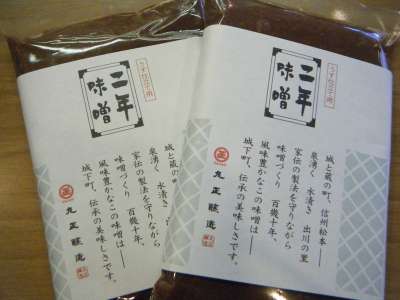 二年
味噌
城と蔵の町、信州松本――
泉湧く 水清き 出川の里
家伝の製法を守りながら
味噌づくり 百幾十年、
風味豊かなこの味噌は――
城下町、伝承の美味しさです。
丸正醸造
二年
味噌
泉湧く 水清き 出
家伝の製法を守りながら
味噌づくり 百幾十年、
風味豊かなこの味噌は――
城下町、伝承の美味しさです。
丸正醸造